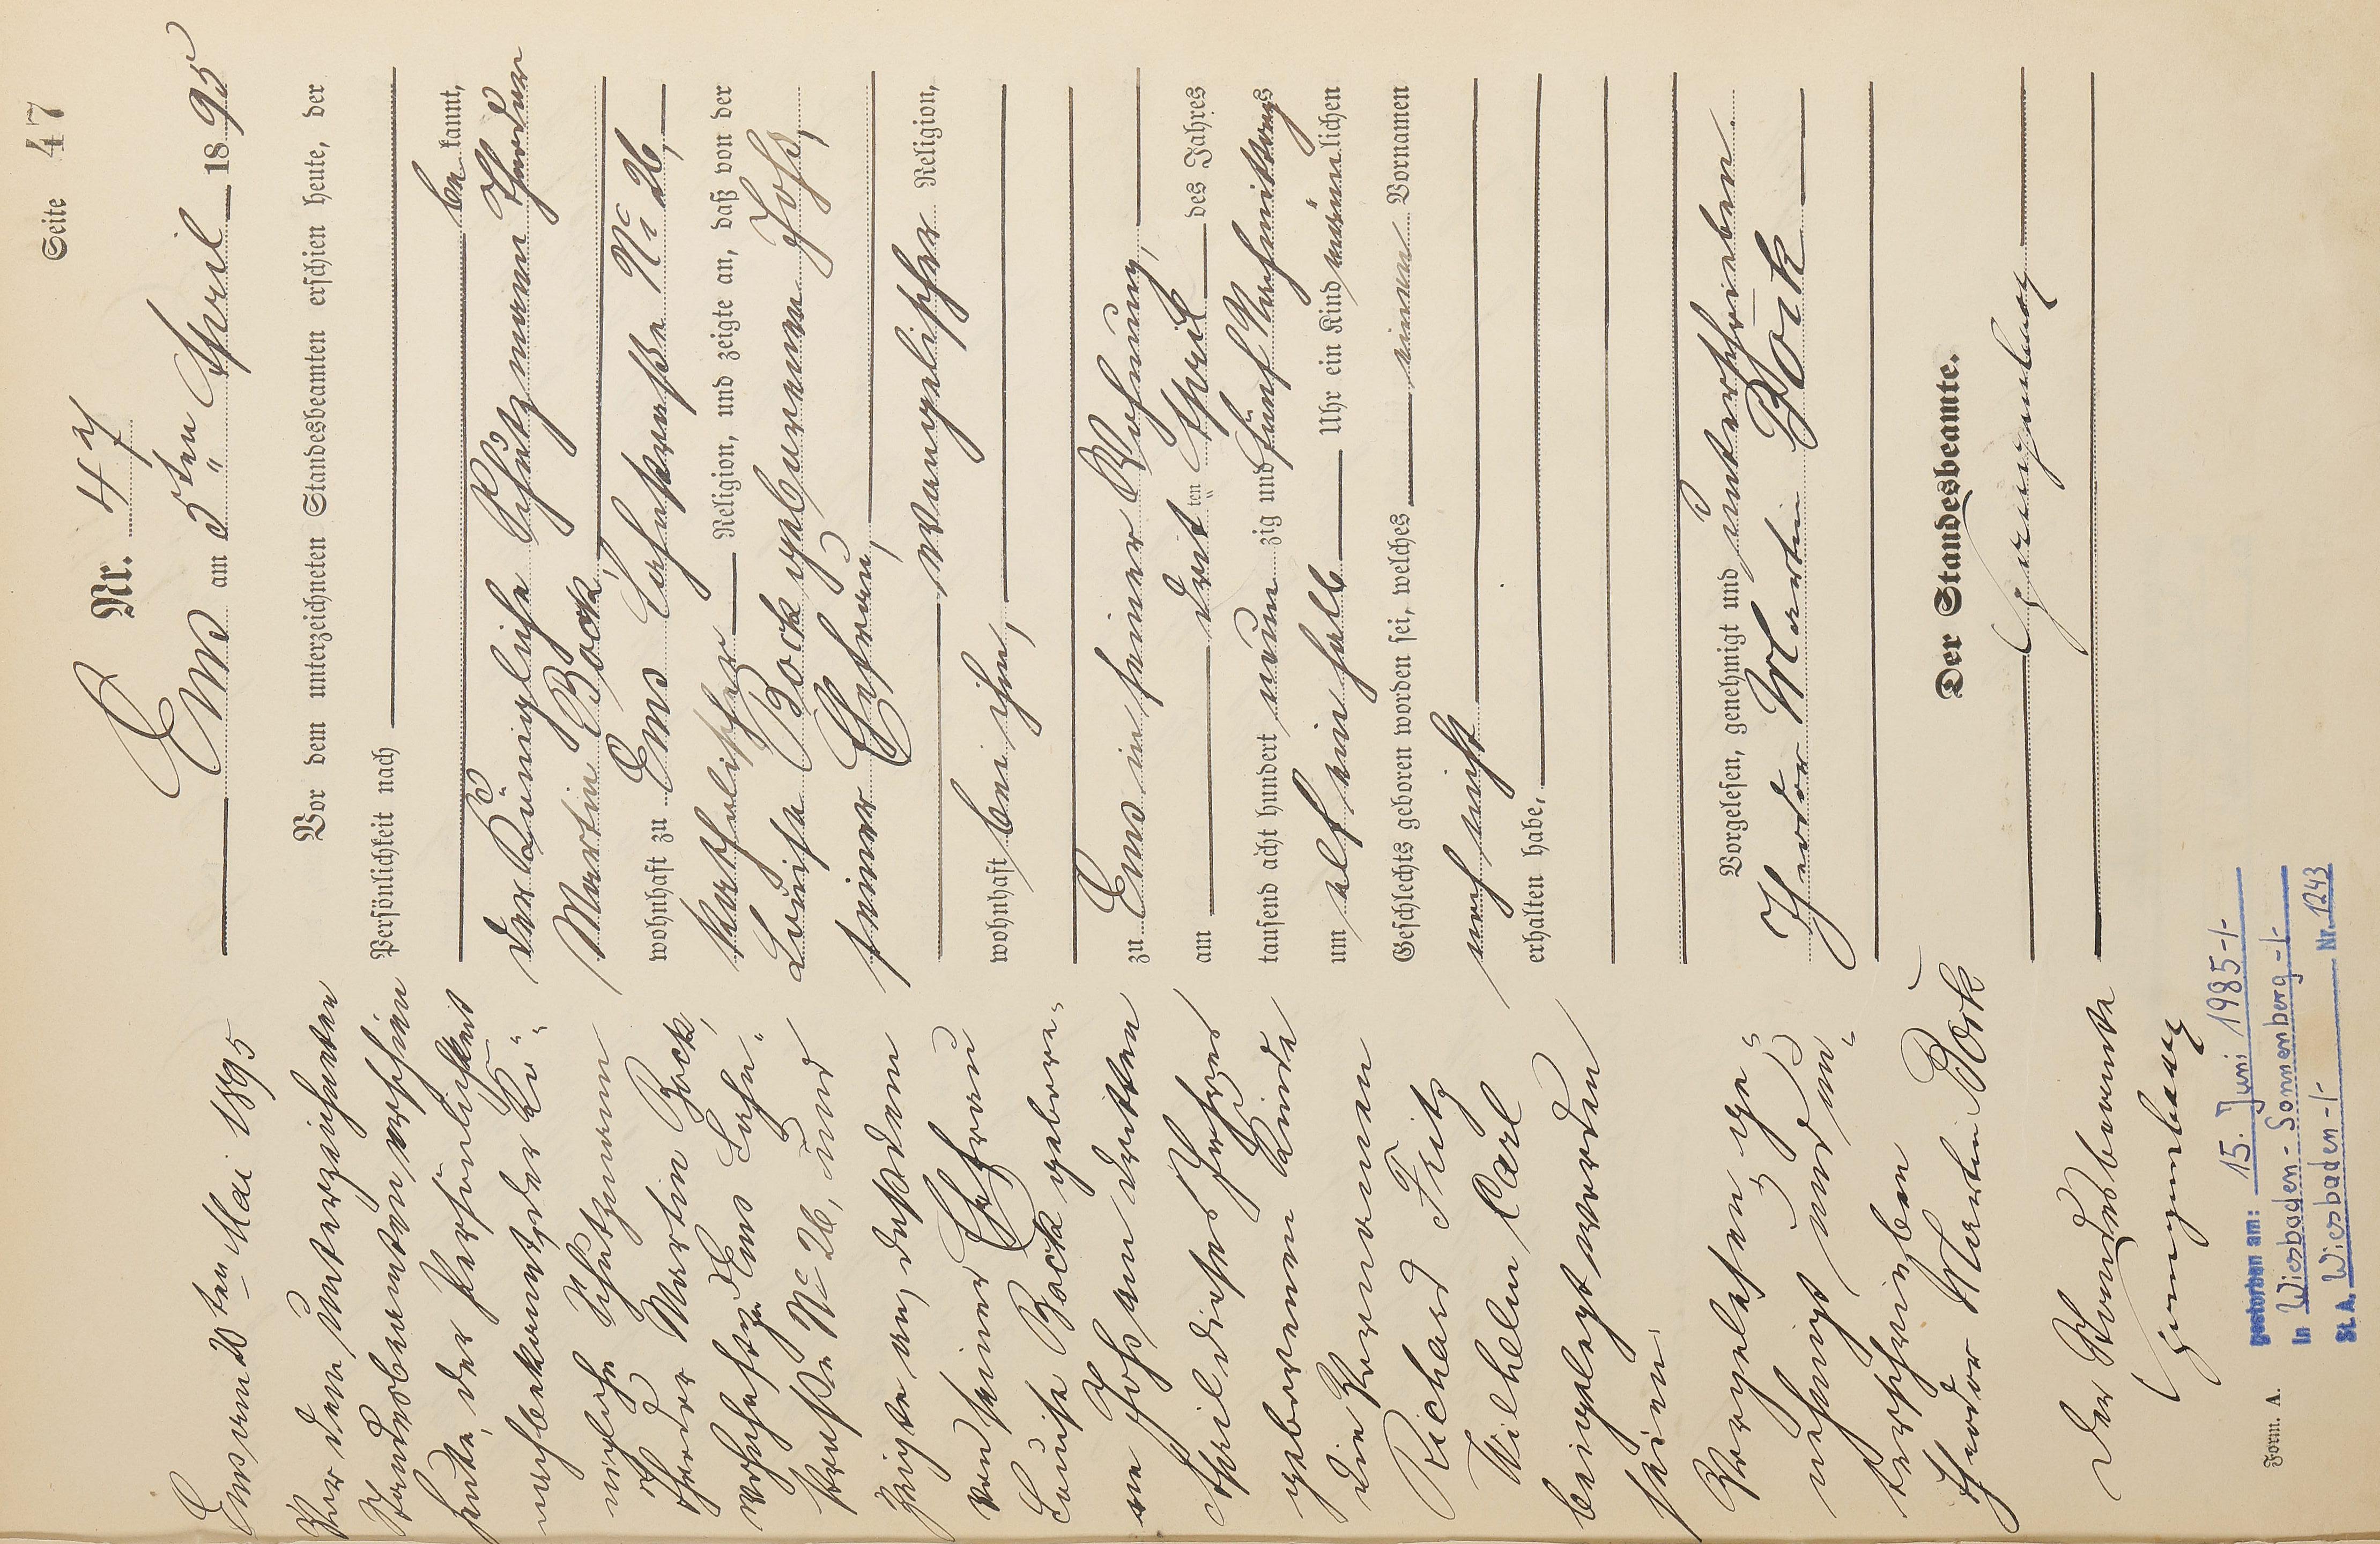 Seite 47
Nr. 47
Ems am 5ten April 1895
Vor dem unterzeichneten Standesbeamten erschien heute, der
Persönlichkeit nach
bekannt,
der Königliche Schutzmann Theodor
Martin Bock,
wohnhaft zu Ems Lahnstraße No 26,
katholischer Religion, und zeigte an, daß von der
Louise Bock geborenen Johs,
seiner Ehefrau,
evangelischer Religion,
wohnhaft bei ihm,
zu Ems in seiner Wohnung,
am dritten April des Jahres
tausend acht hundert neunzig und fünf Nachmittags
um elf ein halb Uhr ein Kind männlichen
Geschlechts geboren worden sei, welches einen Vornamen
noch nicht
erhalten habe,
Vorgelesen, genehmigt und unterschrieben
Theodor Martin Bock
Der Standesbeamte.
Ems am 20ten Mai 1895
Vor dem unterzeichneten
Standesbeamten erschien
heute, der Persönlichkeit
nach bekannt, der Kö-
nigliche Schutzmann
Theodor Martin Bock,
wohnhaft zu Ems Lahn-
straße No 26, und
zeigte an, daß dem
von seiner Ehefrau
Louise Bock gebore-
ne Johs am dritten
April dieses Jahres
geborenen Kinde
die Vornamen
Richard Fritz
Wilhelm Carl
beigelegt worden
seien.
Vorgelesen, ge-
nehmigt und un-
terschrieben
Theodor Martin Bock
Der Standesbeamte
Form. A.
gestorben am: 15. Juni 1985-/-
in Wiesbaden-Sonnenberg-/-
St. A. Wiesbaden-/- Nr. 1243